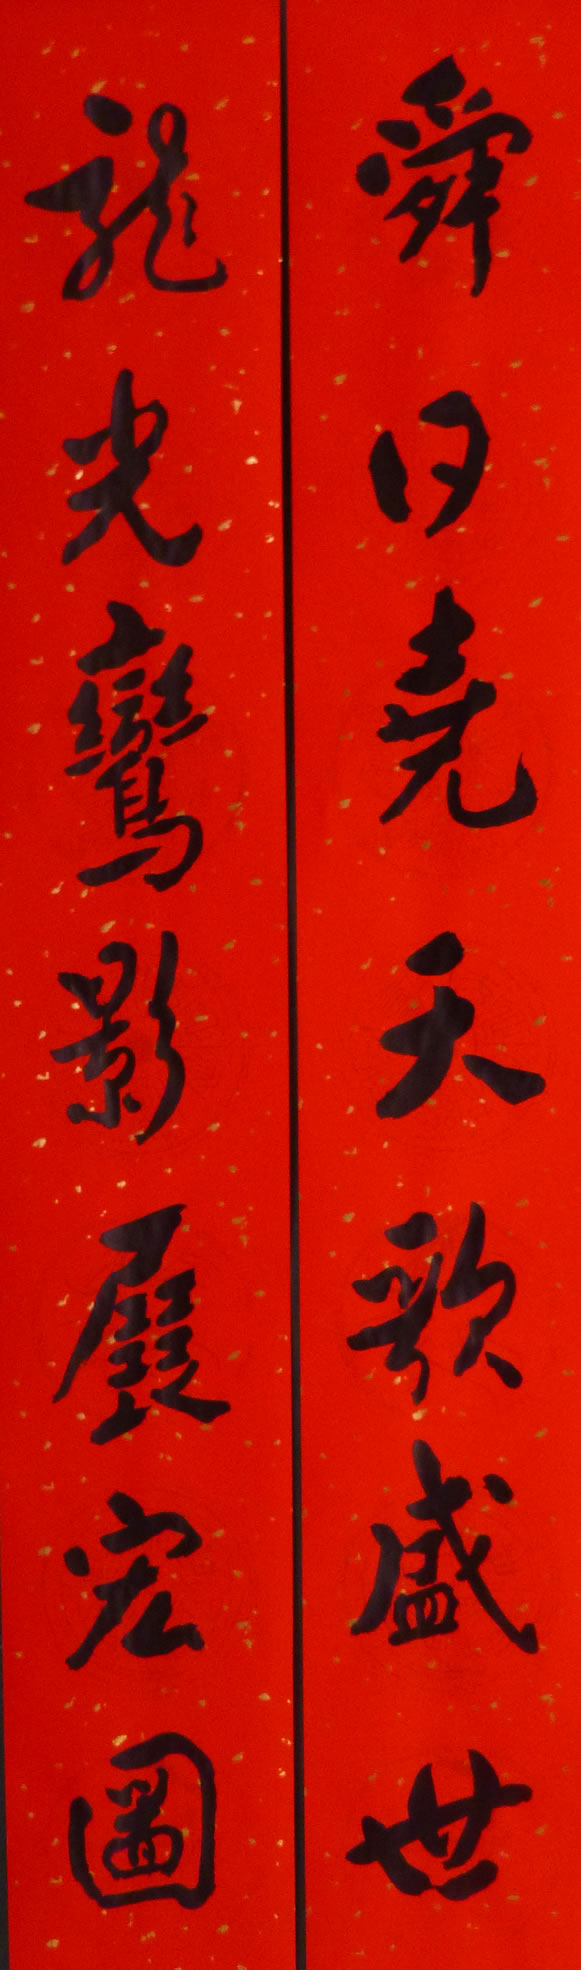 舜日堯天歌盛世
龍光鸞影展宏圖